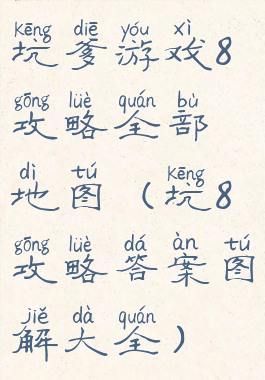 kēng diē yóu xì
坑爹游戏8
gōng lüè quán bù
攻略全部
dì tú kēng
地图（坑8
gōng lüè dá àn tú
攻略答案图
jiě dà quán
解大全）